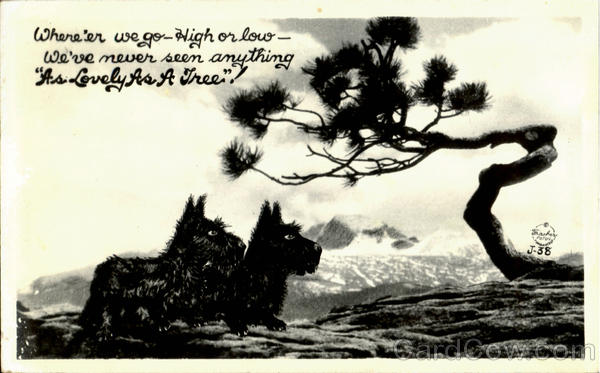 Where'er we go – High or low –
We've never seen anything
"As Lovely As A Tree"!
J-38
CardCow.com